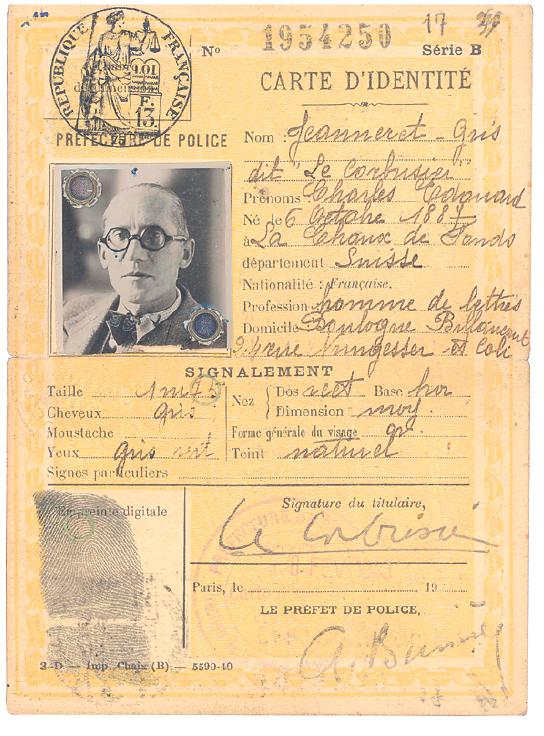 17
RÉPUBLIQUE FRANÇAISE
LOI
F.
13
Nº 1954250
Série B
CARTE D'IDENTITÉ
PRÉFECTURE DE POLICE
Nom Jeanneret-Gris
dit "Le Corbusier"
Prénoms Charles Edouard
Né le 6 Octobre 1887
à La Chaux de Fonds
département Suisse
Nationalité : Française.
Profession homme de lettres
Domicile Boulogne Billancourt
24 rue Nungesser et Coli
SIGNALEMENT
Taille 1m75
Cheveux gris
Moustache
Yeux gris vert
Signes particuliers
Nez Dos rect Base hor
Dimension moy.
Forme générale du visage ov.
Teint naturel
Empreinte digitale
Signature du titulaire,
Le Corbusier
Paris, le 19
LE PRÉFET DE POLICE,
3-D — Imp. Chaix (B) — 5590-40